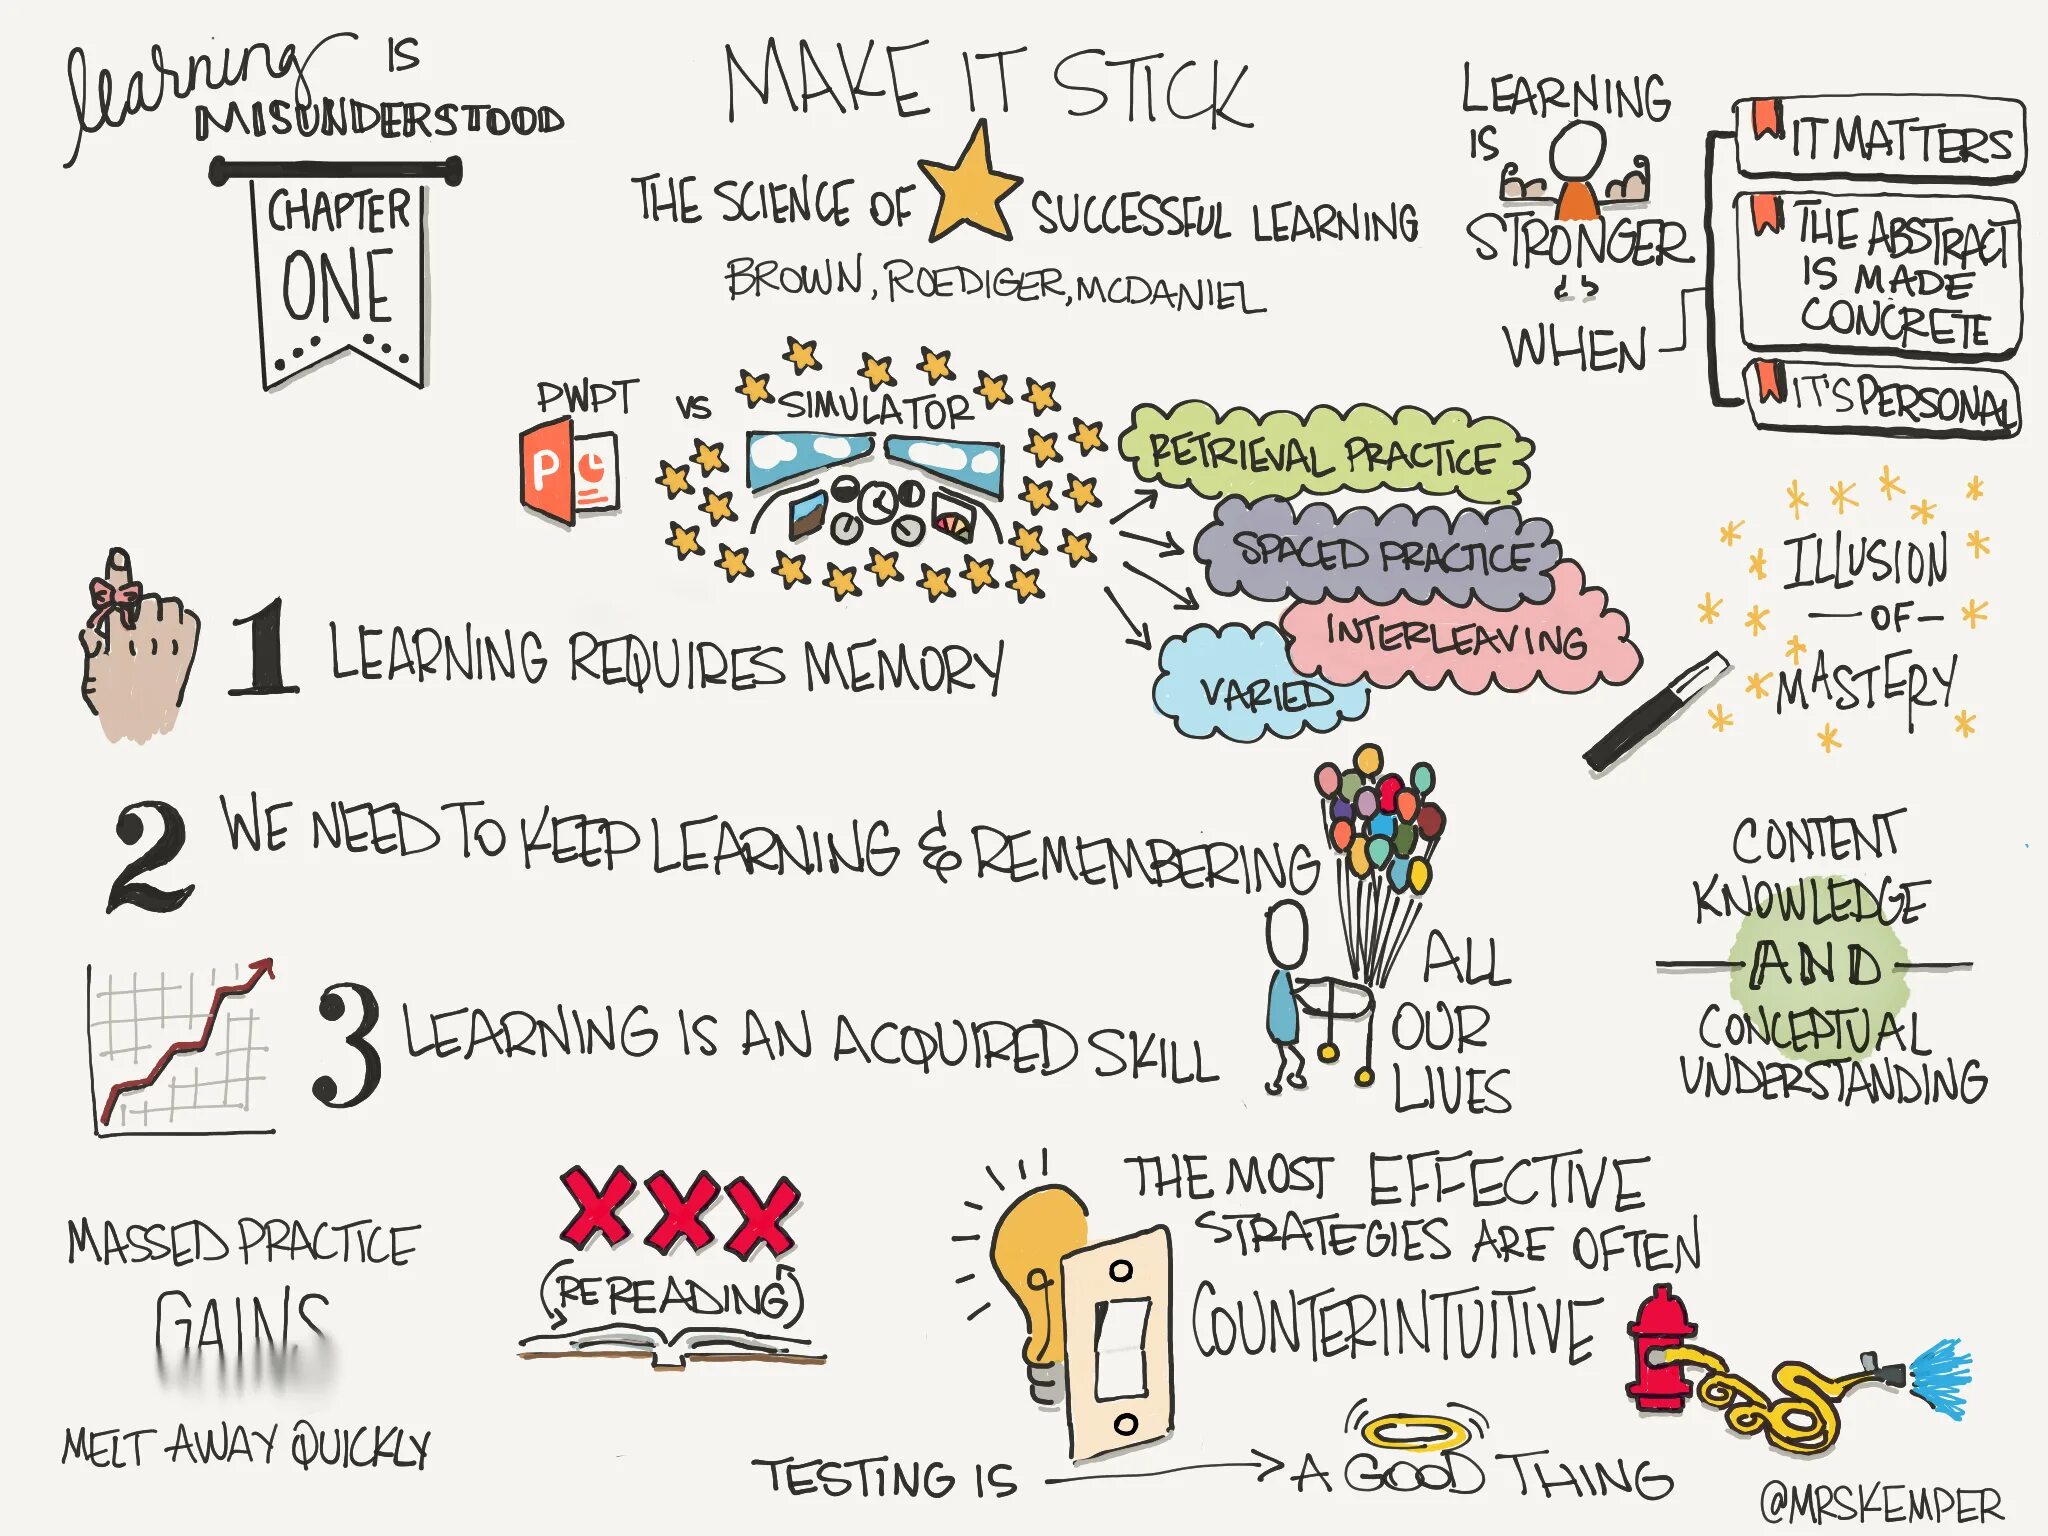 learning IS
MISUNDERSTOOD
CHAPTER
ONE
MAKE IT STICK
THE SCIENCE OF SUCCESSFUL LEARNING
BROWN, ROEDIGER, MCDANIEL
LEARNING
IS
STRONGER
WHEN
IT MATTERS
THE ABSTRACT
IS MADE
CONCRETE
IT'S PERSONAL
PWPT VS SIMULATOR
P
RETRIEVAL PRACTICE
SPACED PRACTICE
INTERLEAVING
VARIED
ILLUSION
OF
MASTERY
1 LEARNING REQUIRES MEMORY
2 WE NEED TO KEEP LEARNING & REMEMBERING
ALL
OUR
LIVES
3 LEARNING IS AN ACQUIRED SKILL
CONTENT
KNOWLEDGE
AND
CONCEPTUAL
UNDERSTANDING
MASSED PRACTICE
GAINS
MELT AWAY QUICKLY
XXX
REREADING
THE MOST EFFECTIVE
STRATEGIES ARE OFTEN
COUNTERINTUITIVE
TESTING IS A GOOD THING
@MRSKEMPER